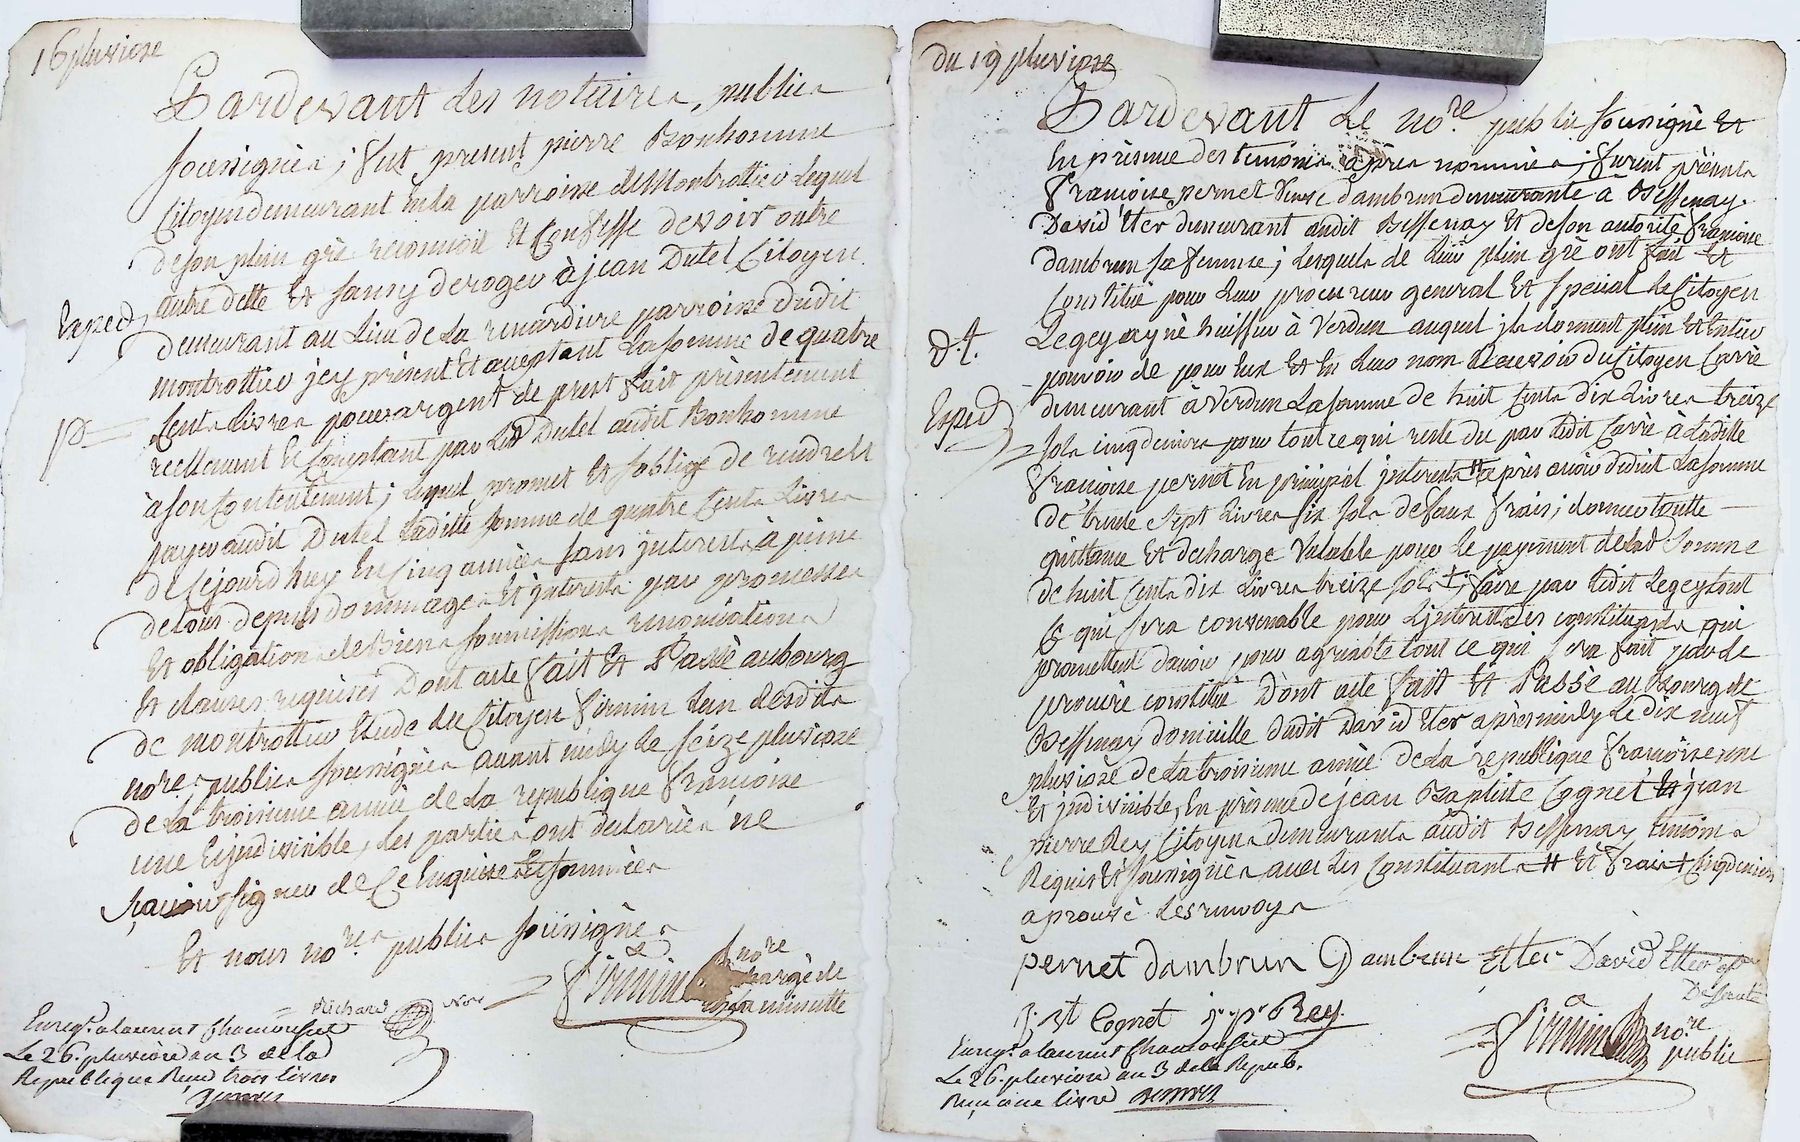 16 pluviose
Pardevant les notaires, publics
soussignés, fut present pierre Bonhomme
Citoyen demeurant en la parroisse de Montrottier lequel
de son plein gré reconnoit et Confesse devoir outre
autre dette et sans y deroger à jean Dutel Citoyen
Exped
demeurant au lieu de la renardiere parroisse dudit
montrottier jcy présent Et acceptant la somme de quatre
Cents livres pour argent de prest fait présentement
reellement et Comptant par led Dutel audit Bonhomme
à son Contentement; lequel promet et s'oblige de rendre et
payer audit Dutel laditte somme de quatre Cents livres
de cejourd'huy En Cinq années sans jnterests, à peine
de tous depens dommages et jnterests par promesses
Et obligations de Biens soumissions renonciations
Et clauses requises Dont acte fait Et Passé au bourg
de montrottier Etude du Citoyen firmin l'un desdits
nores publics soussignés avant midy le seize pluviose
de la troisieme année de la republique françoise
une Et jndivisible, les parties ont declarées ne
sçavoir signer de Ce Enquises Et sommées
Et nous nores publics soussignés
Richard nore
firmin nore
chargé de
la minutte
Enregt. a laurent Chamousset
Le 26. pluviose an 3 de la
Republique Reçu trois livres
du 19 pluviose
Pardevant Le nore public soussigné Et
En présence des temoins après nommés, furent présents
françoise pernet veuve dambrun demeurante à Bessenay.
David Eter demeurant audit Bessenay Et de son autorité françoise
dambrun sa femme; lesquels de leur plein gré ont fait Et
Constitué pour leur procureur general Et special le Citoyen
Legey ayné huissier à Verdun auquel jls donnent plein Et Entier
pouvoir de pour Eux Et En leur nom Recevoir du Citoyen Carré
Exped
demeurant à Verdun la somme de huit Cents dix livres treize
sols cinq deniers pour tout ce qui reste du par ledit Carré à ladite
françoise pernet En principal jnterests # après avoir deduit la somme
de trente sept livres six sols de faux frais; donner toutte
quittance Et decharge Valable pour le payement de lad. somme
de huit Cents dix livres treize sols +; faire par ledit Legey tout
Ce qui sera convenable pour L'jnterest des constituants qui
promettent d'avoir pour agreable tout ce qui sera fait par le
procuré constitué D'ont acte fait Et Passé au Bourg de
Bessenay domicille dudit David Eter après midy le dix neuf
pluviose de la troisieme année de la republique françoise une
Et jndivisible, En présence de jean Baptiste Cognet Et jean
Pierre Rey Citoyens demeurants audit Bessenay temoins
Requis Et soussignés avec les Constituants # Et frais + Cinq deniers
aprouvé les renvoys
pernet dambrun Dambrun Etter David Etter
J. Bt Cognet j. pr Rey
firmin nore
public
Enregt. a laurent Chamousset
Le 26. pluviose an 3 de la Repub.
Reçu une livre